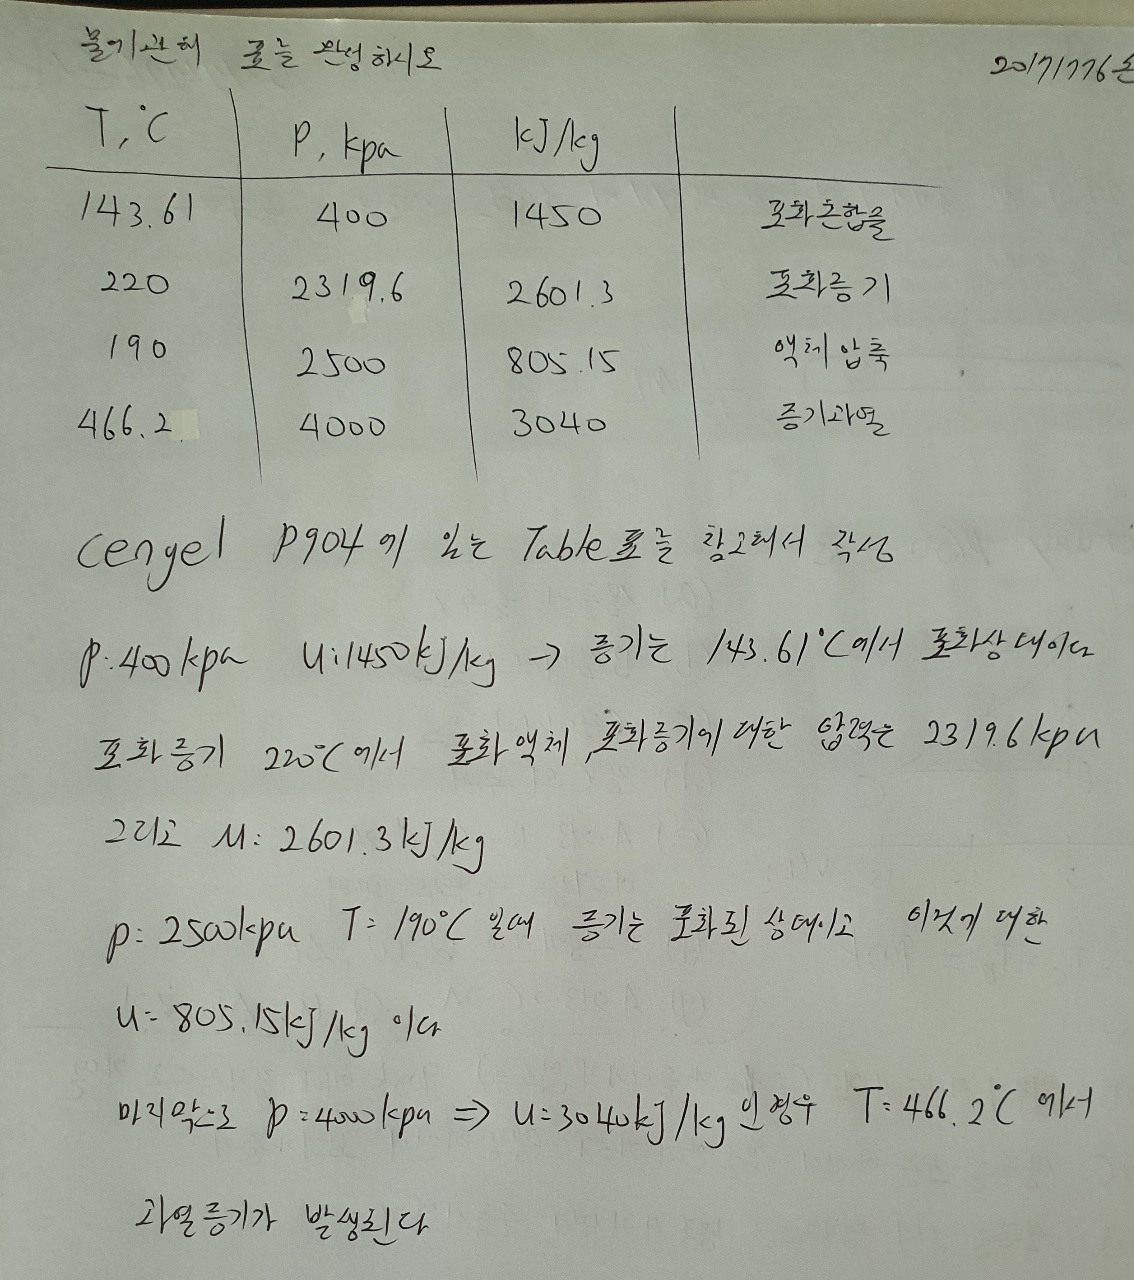 물에관해 표를 완성하시오
20171776손
T, °C P, kpa kJ/kg
143.61 400 1450 포화혼합물
220 2319.6 2601.3 포화증기
190 2500 805.15 액체압축
466.2 4000 3040 증기과열
cengel P904에 있는 Table표를 참고해서 작성
P:400kpa u:1450kJ/kg → 증기는 143.61°C에서 포화상태이다
포화증기 220°C에서 포화액체,포화증기에 대한 압력은 2319.6kpa
그리고 u: 2601.3kJ/kg
p: 2500kpa T= 190°C 일때 증기는 포화된 상태이고 이것에 대한
u= 805.15kJ/kg 이다
마지막으로 p=4000kpa ⇒ u=3040kJ/kg인경우 T=466.2°C에서
과열증기가 발생된다